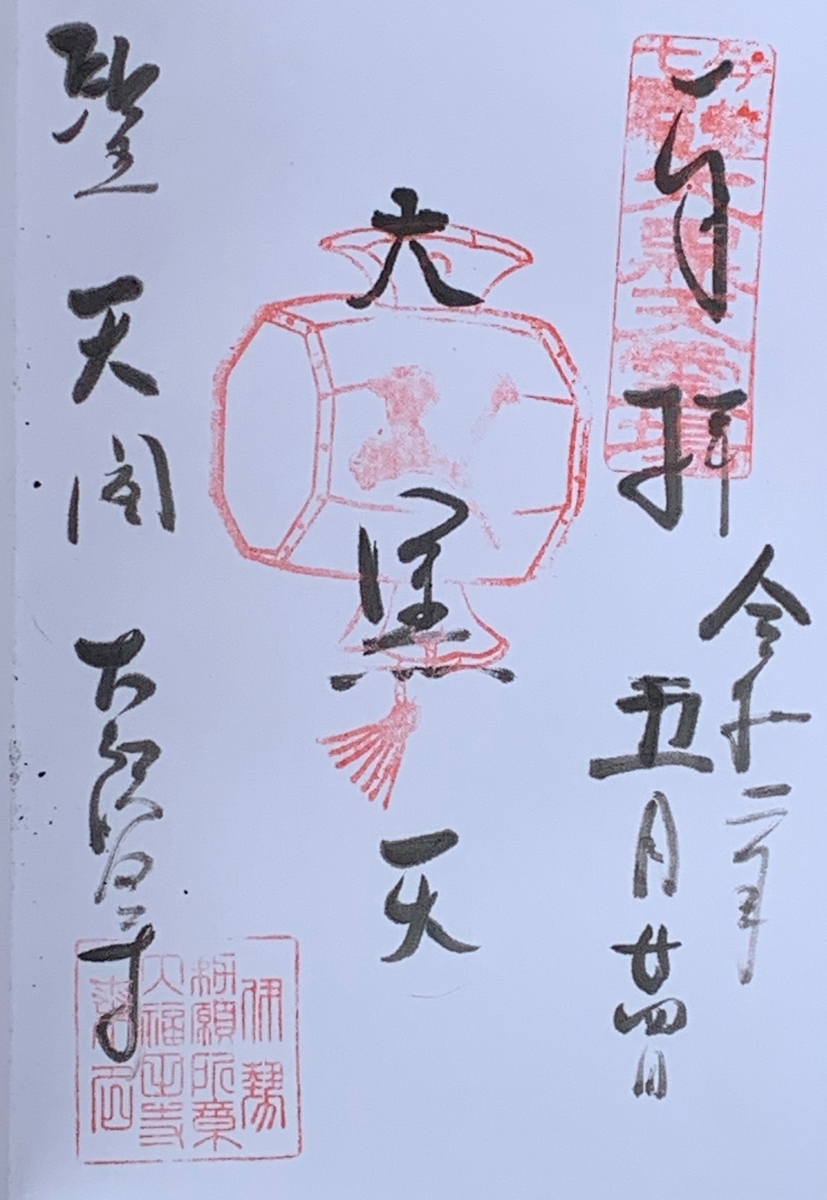 奉拝
令和二年
五月廿四日
大黒天
聖天閣 大福田寺
伊勢
勅願所章
大福田寺
桑名